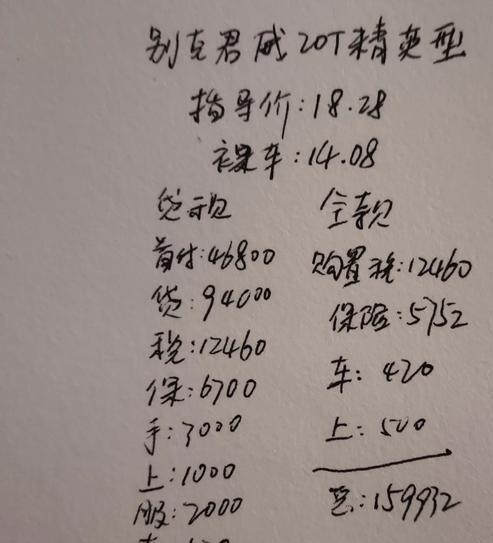 别克君威20T精英型
指导价:18.28
裸车:14.08
贷款
首付:46800
贷:94000
税:12460
保:6700
手:3000
上:1000
服:2000
全款
购置税:12460
保险:5752
车:420
上:500
总:159932